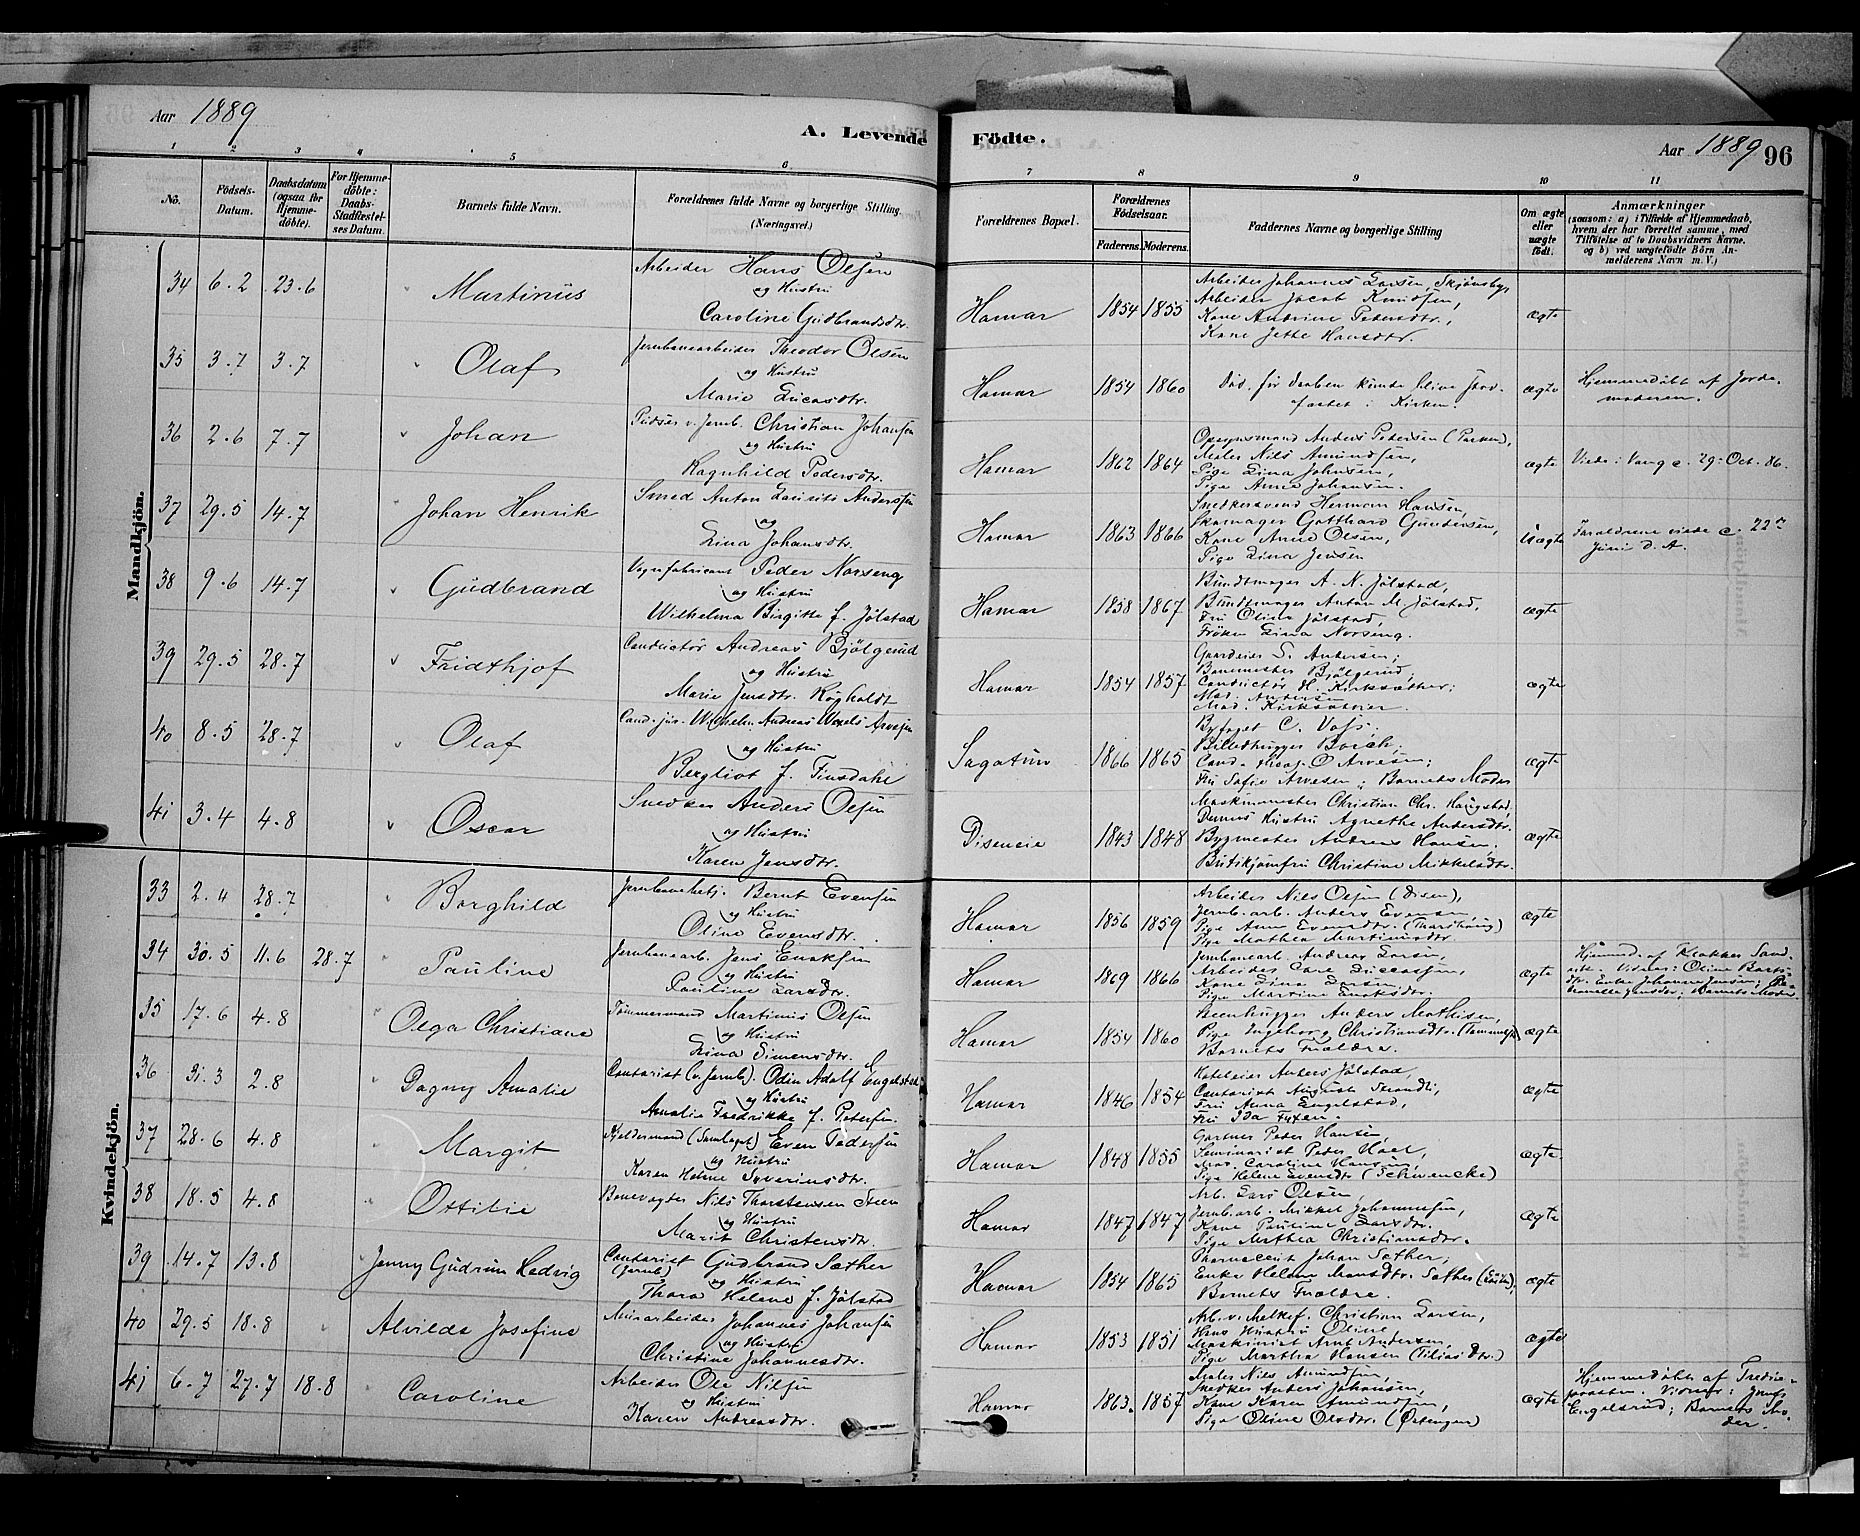 Aar 1889
A. Levende Födte.
Aar 1889 96
1 2 3 4 5 6 7 8 9 10 11
No.
Födsels-Datum.
Daabsdatum (ogsaa for Hjemme-döbte).
For Hjemme-döbte: Daabs-Stadfæstel-ses Datum.
Barnets fulde Navn.
Forældrenes fulde Navne og borgerlige Stilling. (Næringsvei.)
Forældrenes Bopæl.
Forældrenes Födselsaar.
Faderens. Moderens.
Faddernes Navne og borgerlige Stilling
Om ægte eller uægte födt.
Anmærkninger
(saasom: a) i Tilfælde af Hjemmedaab, hvem der har forrettet samme, med Tilföielse af to Daabsvidners Navne, og b) ved uægtefödte Börn An-melderens Navn m. V.)
Mandkjön.
34 6.2 23.6 Martinus
Arbeider Hans Olsen
og Hustru
Caroline Gudbrandsdtr.
Hamar 1854 1855
Arbeider Johannes Larsen, Skjönsby,
Arbeider Jacob Knudsen,
Kone Andrine Pedersdtr.,
Kone Jette Hansdtr.
ægte
35 3.7 3.7 Olaf
Jernbanearbeider Theodor Olsen
og Hustru
Marie Lucasdtr.
Hamar 1854 1860
Död, för daaben kunde blive stad-
fæstet i Kirken.
ægte
Hjemmedöbt af Jorde-
moderen.
36 2.6 7.7 Johan
Pudser v. Jernb. Christian Johansen
og Hustru
Ragnhild Pedersdtr.
Hamar 1862 1864
Opsynsmand Anders Petersen (Parken),
Maler Nils Amundsen,
Pige Lina Johnsen,
Pige Anna Johansen.
ægte
Viede i Vang c. 29. Oct. 86.
37 29.5 14.7 Johan Henrik
Smed Anton Laurits Anderssen
og
Lina Johansdtr.
Hamar 1863 1866
Snedkersvend Herman Hansen,
Skomager Gotthard Gundersen,
Kone Anne Olsen,
Pige Lina Jensen
uægte
Forældrene viede c. 22de
Juni d. A.
38 9.6 14.7 Gudbrand
Vognfabricant Peder Norseng
og Hustru
Wilhelma Birgitte f. Jölstad
Hamar 1858 1867
Bundtmager A. N. Jölstad,
Bundtmager Anton M. Jölstad,
Fru Olina Jölstad,
Fröken Lina Norseng.
ægte
39 29.5 28.7 Fridthjof
Conductör Andreas Bjölgerud
og Hustru
Marie Jensdtr. Rögholdt
Hamar 1854 1857
Gaardeier S. Andersen;
Banemester Bjölgerud,
Conductör H. Kirksæther;
Mad. Andersen
Mad. Kirksæther.
ægte
40 8.5 28.7 Olaf
Cand. jur. Wilhelm Andreas Wexels Arvesen
og Hustru
Bergliot f. Finsdahl
Sagatun 1866 1865
Byfoget C. Voss;
Billedhugger Borch;
Cand. theol. O. Arvesen;
Fru Sofie Arvesen; Barnets Moder
ægte
41 3.4 4.8 Oscar
Snedker Anders Olsen
og Hustru
Karen Jensdtr.
Diseneie 1843 1848
Maskinmester Christian Chr. Haugstad,
Dennes Hustru Agnethe Andersdtr.
Bygmester Andreas Hansen,
Butikjomfru Christine Mikkelsdtr.
ægte
Kvindekjön.
33 2.4 28.7 Borghild
Jernbanebetj. Bernt Evensen
og Hustru
Oline Evensdtr.
Hamar 1856 1859
Arbeider Nils Olsen (Disen),
Jernb. arb. Anders Evensen,
Pige Anne Evensdtr.
Pige Mathea Martinusdtr
ægte
34 30.5 11.6 28.7 Pauline
Jernbanearb. Jens Enoksen
og Hustru
Pauline Larsdtr.
Hamar 1869 1866
Jernbanearb. Andreas Larsen,
Arbeider Carl Lucassen,
Kone Lina Larsen,
Pige Martine Enoksdtr.
ægte
Hjemmed. af Klokker Sand-
Vidner: Oline Barts-
Enke Johanne Jensen;
Barnets Moder.
35 17.6 4.8 Olga Christiane
Tömmermand Martinus Olsen
og Hustru
Lina Simensdtr.
Hamar 1854 1860
Steenhugger Anders Mathisen,
Pige Ingeborg Christiansdtr.
Barnets Forældre.
ægte
36 31.3 2.8 Dagny Amalie
Contorist (v. Jernb). Odin Adolf Engelstad
og Hustru
Amalie Fredrikke f. Petersen.
Hamar 1846 1854
Hoteleier Anders Jölstad,
Contorist August Strandli,
Fru Anna Engelstad,
Fru Ida Fyxen.
ægte
37 28.6 4.8 Margit
Kjeldermand (Samlaget) Even Pedersen
og Hustru
Karen Helene Syverinsdtr.
Hamar 1848 1855
Gartner Peter Hansen,
Seminarist Peter Hoel,
Mad. Caroline Hansen,
Pige Helene Evensdtr (Schwencke)
ægte
38 18.5 4.8 Ottilie
Banevogter Nils Thorstensen Steen
og Hustru
Marit Christensdtr.
Hamar 1847 1847
Arb. Lars Olsen,
Jernb. arb. Mikkel Johannesen,
Kone Pauline Larsdtr.
Pige Mathea Christiansdtr.
ægte
39 14.7 13.8 Jenny Gudrun Hedvig
Contorist Gudbrand Sæther
(Jernb.) og Hustru
Thora Helene f. Jölstad
Hamar 1854 1865
Pharmaceut Johan Sæther;
Enke Helene Monsdtr. Sæther (Löiten);
Barnets Forældre.
ægte
40 29.5 18.8 Alvilde Josefine
Murarbeider Johannes Johansen
og Hustru
Christine Johannesdtr.
Hamar 1853 1851
Arb. v. Melkef. Christian Larsen,
Hans Hustru Oline
Maskinist Arnt Andersen,
Pige Martha Hansen
ægte
41 6.7 27.7 18.8 Caroline
Arbeider Ole Nilsen
og Hustru
Karen Andreasdtr.
Hamar 1863. 1857
Maler Nils Amundsen,
Snedker Anders Johansen,
Kone Karen Amundsen,
Pige Oline Olsdtr. (Östengen)
ægte
Hjemmedöbt af Stedie-
Vidner: Jomfr
Engelsrud; Barnets Mo-
der.